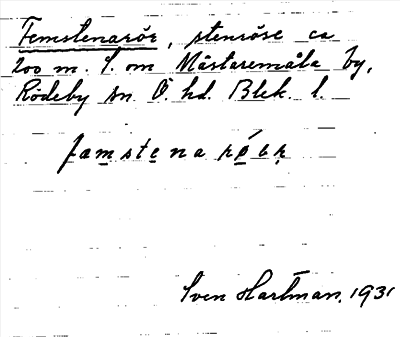 Femstenarör, stenröse ca
200 m. S. om Mästaremåla by,
Rödeby sn Ö. hd. Blek. l.
Sven Hartman. 1931